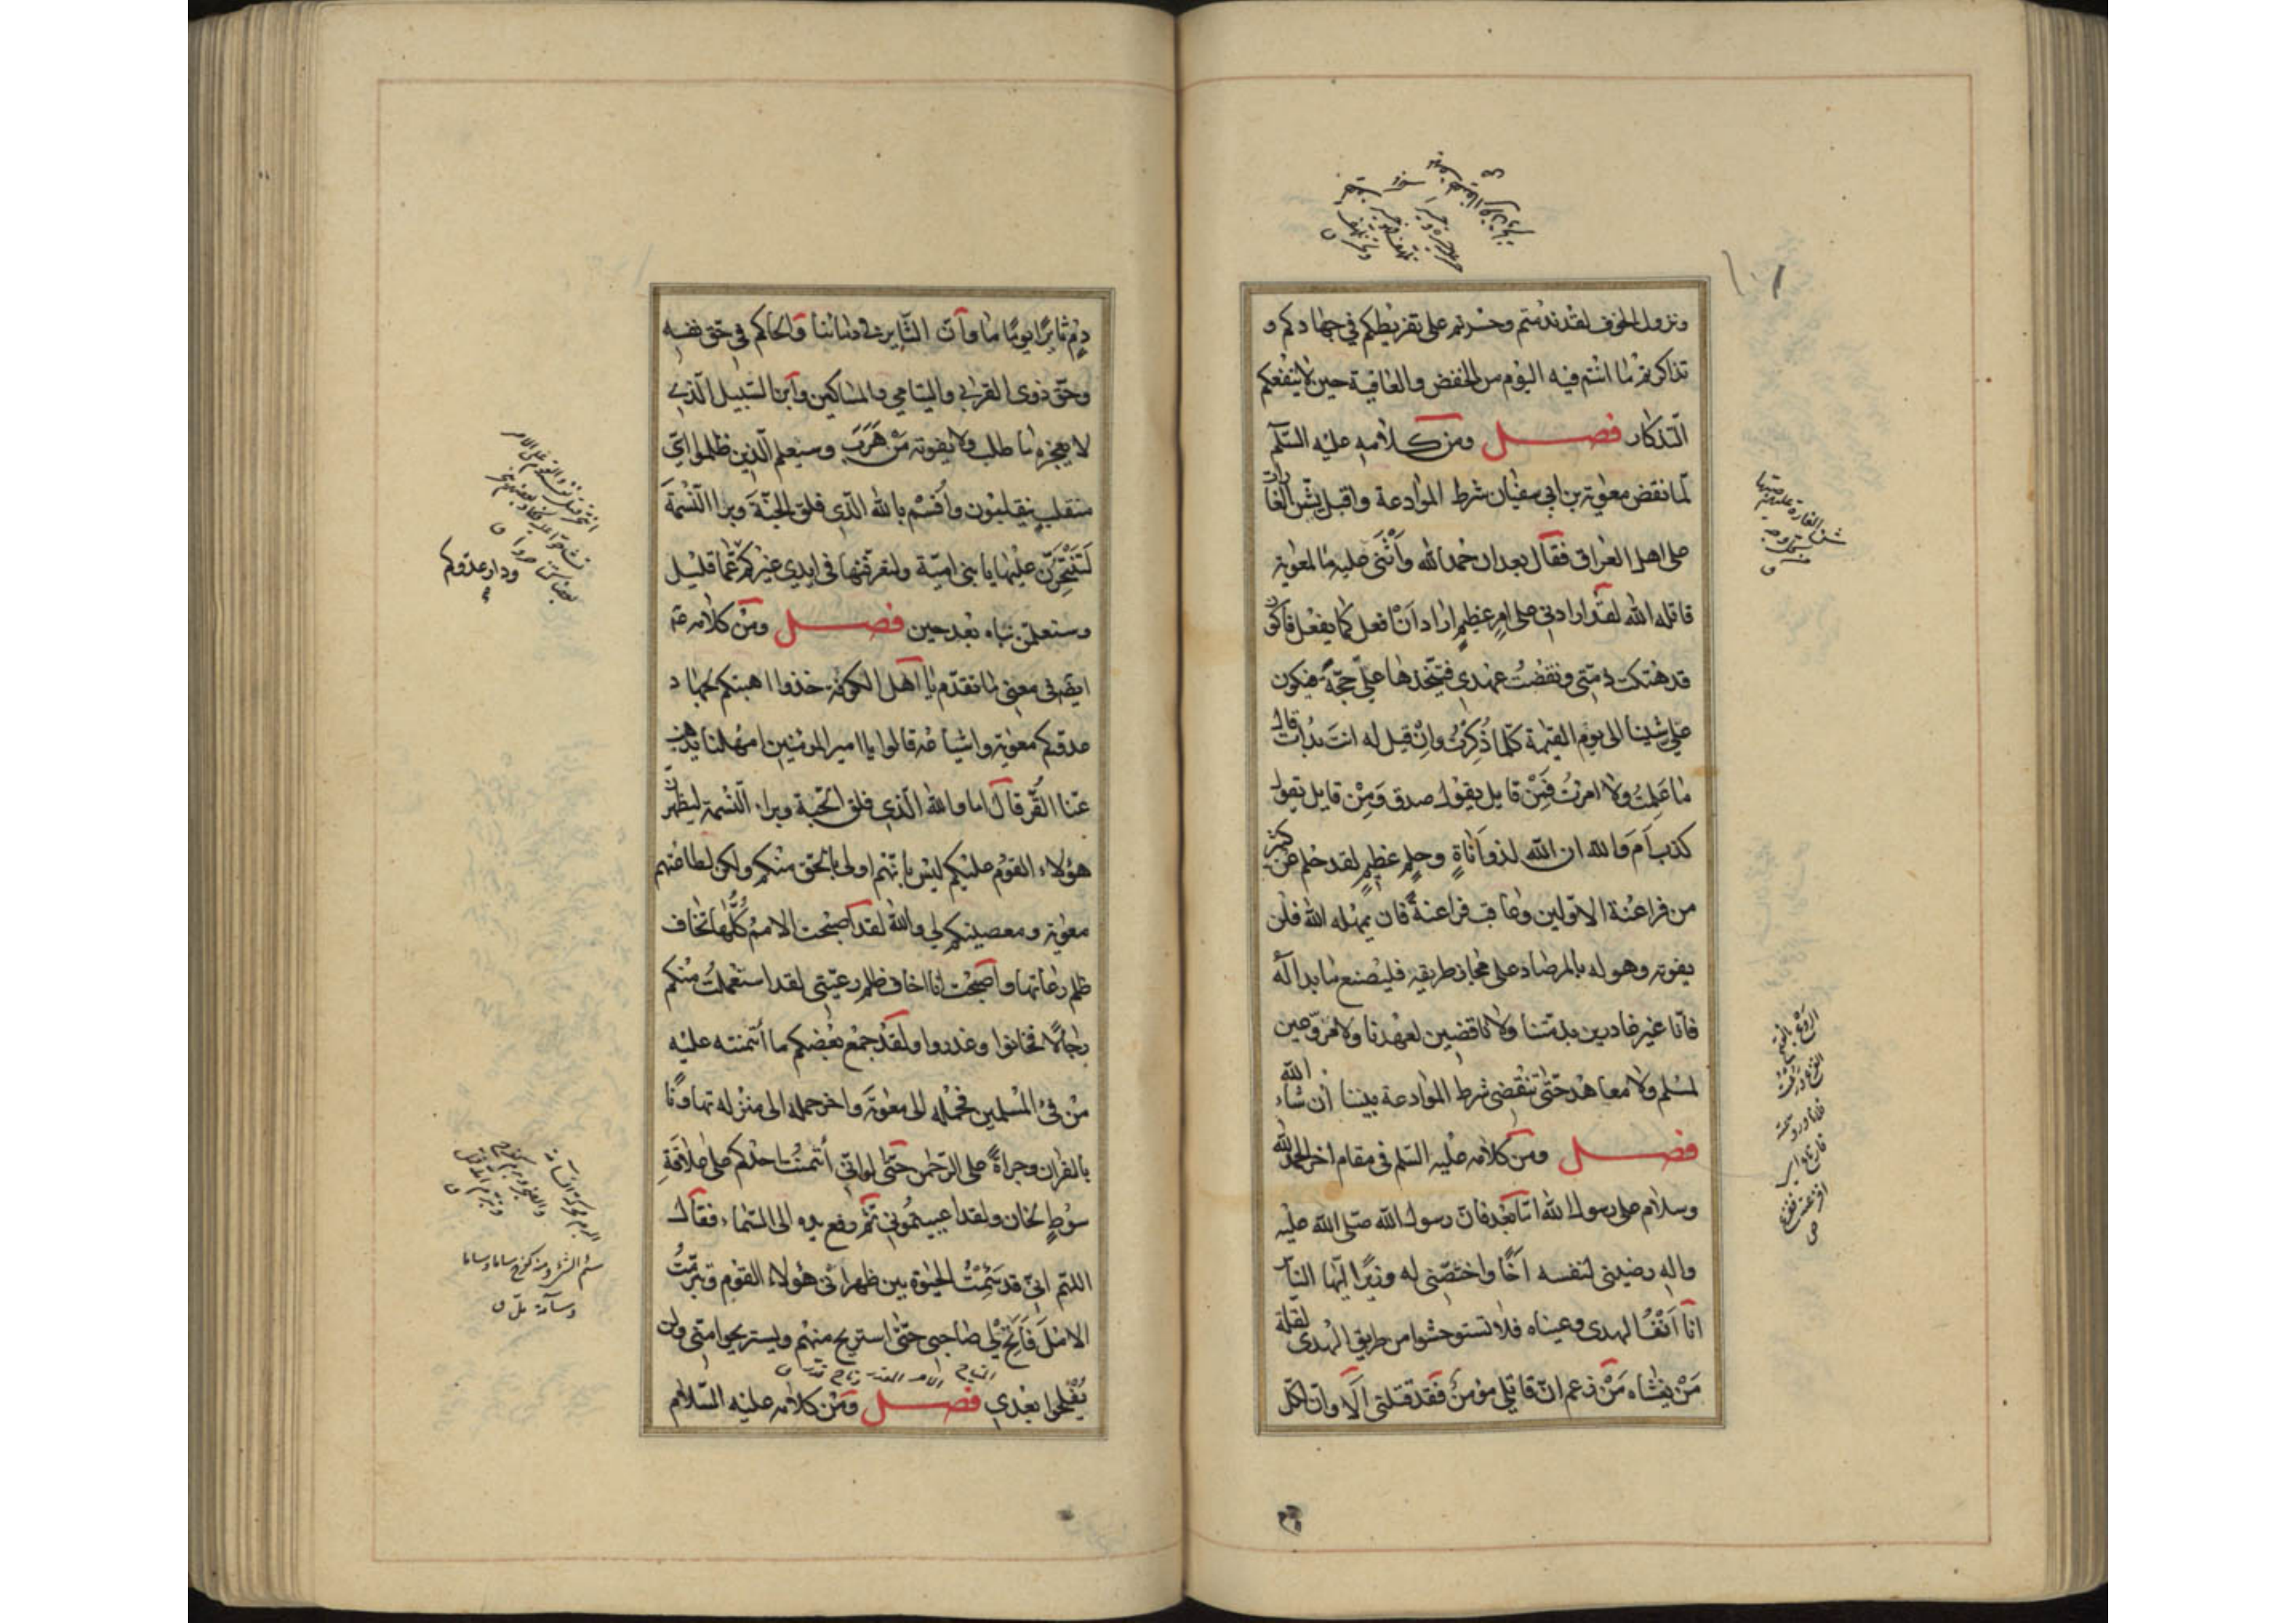 ونزول الخوف لقد ندمتم وخسرتم على تفريطكم في جهادكم و
تذاكرتم ما انتم فيه اليوم من الخفض والعافية حين لا ينفعكم
التذكار فصل ومن كلامه عليه السلم
لما نقض معوية بن ابي سفيان شرط الموادعة واقبل يشن الغارات
على اهل العراق فقال بعد ان حمد الله وأثنى عليه ما لمعوية
قاتله الله لقد ارادني على امرٍ عظيمٍ اراد اَنْ افعل كما يفعل فاكون
قد هتكت ذمتي ونقضتُ عهدي فيتّخذها عليّ حجّة فيكون
عليّ شينا الى يوم القيمة كلّما ذُكِرْتُ وانْ قيل له انتَ بدأت قال
ما عَلِمتُ ولا امرتُ فَمِنْ قايل يقول صدق وَمِنْ قايل يقول
كذب اَمَ والله ان الله لذو اَناةٍ وحلمٍ عظيمٍ لقد حلم عن كثير
من فراعنة الاوّلين وعاقب فراعنةً فان يمهله الله فلن
يفوته وهو له بالمرصاد على مجاز طريقه فليصنع ما بدا لَه
فانّا غير غادرين بذمّتنا ولا ناقضين لعهدنا ولا مروّعين
لمسلم ولا معاهد حتّى تنقضى شرط الموادعة بيننا ان شاء الله
فصل ومن كلامه عليه السلم في مقام اخر الحمد لله
وسلام على رسول الله امّا بَعْد فانّ رسول الله صلّى الله عليه
واله رضيني لنفسه اَخًا واختصّني له وزيرًا ايّها الناس
انا اَنْفُ الهدى وعيناه فلا تستوحشوا من طريق الهدى لقلة
مَنْ يغشاه مَنْ زعم انّ قاتلي مؤمن فقد قتلني اَلا وانّ لكلّ
دمٍ ثايرًا يومًا ما وانّ الثّاير في دمائنا والحاكم في حق نفسه
وحقّ ذوى القربى واليتامى والمساكين وابن السّبيل الّذي
لا يعجزه ما طلب ولا يفوته مَنْ هَرَبَ وسيعلم الّذين ظلموا ايّ
منقلبٍ ينقلبون واُقسم بالله الّذي فلق الحبّةَ وبرا النّسمة
لَتَنْتَحِرُنّ عليها يا بني اميّة ولتعرفنّها في ايدي غيركم عمّا قليل
وستعلمنّ نباه بعد حين فصل ومن كلامه عم
ايضا في معنى ما تقدّم يا اهل الكوفة خذوا اهبتكم لجهاد
عدوّكم معوية واشياعه قالوا يا امير المؤمنين امهلنا يذهب
عنّا القُرّ قال اما والله الّذي فلق الحبّة وبرا النّسمة ليظهرنّ
هؤلاء القوم عليكم ليس بانّهم اولى بالحقّ منكم ولكن لطاعتهم
معوية ومعصيتكم لي والله لقد اصبحت الامم كُلُّها تخاف
ظلم رعاتها واصبحْت انا اخاف ظلم رعيّتي لقد استعملتُ منكم
رجالاً فخانوا وغدروا ولقد جمع بعضكم ما ائتمنته عليه
من فئ المسلمين فحمله الى معوية واخر حمله الى منزله تهاونًا
بالقران وجراةً على الرّحمن حتّى لو انّي ائتمنتُ احدكم على علاقةِ
سوطٍ لخان ولقد اعييتموني ثمّ رفع يده الى السّماء فقال
اللهمّ انّي قد سَئِمْتُ الحيوة بين ظهراني هؤلاء القوم وتبرّمتُ
الامَلَ فَاَتِحْ لي صاحبي حتّى استريح منهم ويستريحوا منّي ولن
يُفْلِحوا بعدي فصل ومن كلامه عليه السّلام
ودار عدوكم